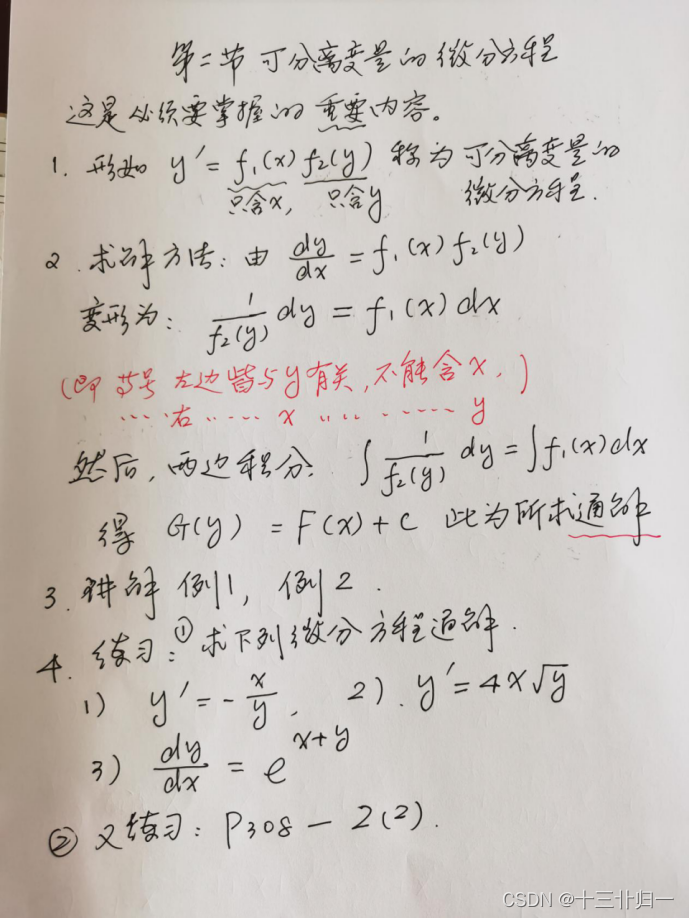 第二节 可分离变量的微分方程
这是必须要掌握的重要内容。
1. 形如 y′ = f₁(x) f₂(y) 称为可分离变量的
只含x, 只含y 微分方程.
2. 求解方法: 由 dy/dx = f₁(x) f₂(y)
变形为: 1/f₂(y) dy = f₁(x) dx
(即等号左边皆与y有关, 不能含x,)
……右…… x ……  …… y
然后, 两边积分: ∫ 1/f₂(y) dy = ∫ f₁(x) dx
得 G(y) = F(x) + C 此为所求通解
3. 讲解 例1, 例2.
4. 练习: ① 求下列微分方程通解.
1) y′ = - x/y, 2). y′ = 4x√y
3) dy/dx = e^(x+y)
② 又练习: P308 - 2(2).
CSDN @十三卝归一